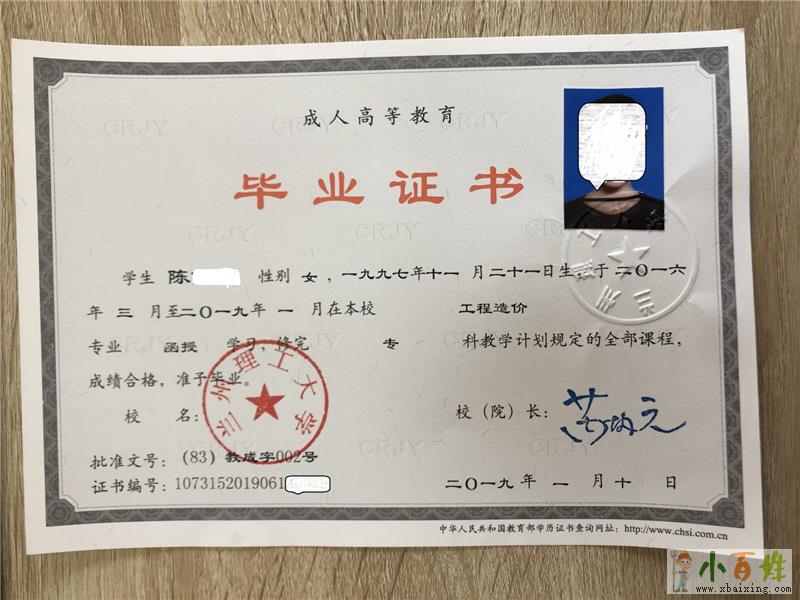 成人高等教育
毕业证书
学生 陈 性别 女，一九九七年十一月二十一日生，于二〇一六
年 三 月至二〇一九年 一 月在本校 工程造价
专业 函授 学习，修完 专 科教学计划规定的全部课程，
成绩合格，准予毕业。
校 名： 校（院）长：
兰州理工大学
批准文号：(83) 教成字002号
证书编号：1073152019061
二〇一九年 一 月 十 日
中华人民共和国教育部学历证书查询网址：http://www.chsi.com.cn
小百姓
www.xbaixing.com